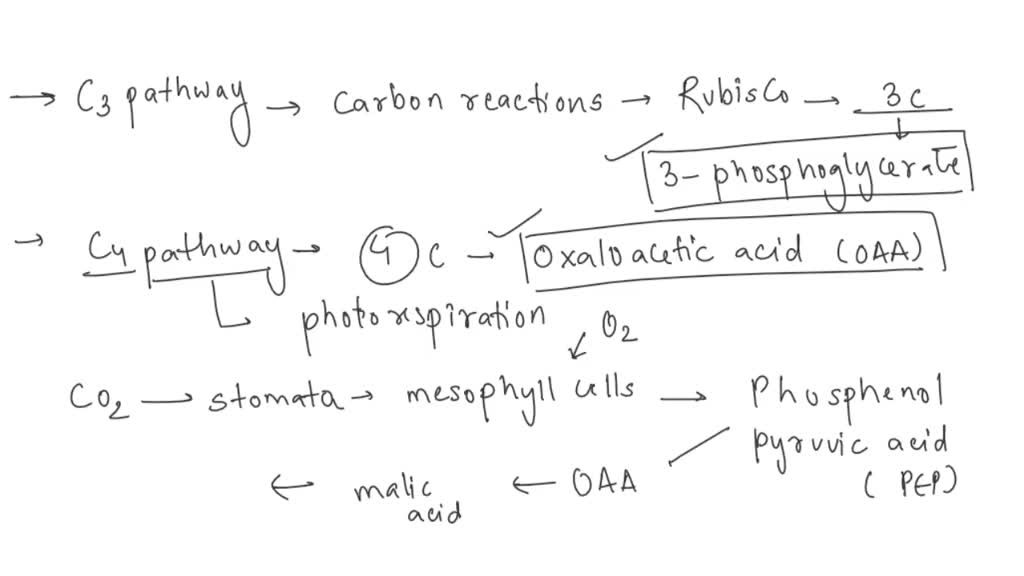 → C3 pathway → Carbon reactions → RubisCo → 3C
3-phosphoglycerate
→ C4 pathway → 4 C → Oxaloacetic acid (OAA)
photorespiration
O2
CO2 → stomata → mesophyll cells → Phosphenol
pyruvic acid
(PEP)
← malic ← OAA
acid